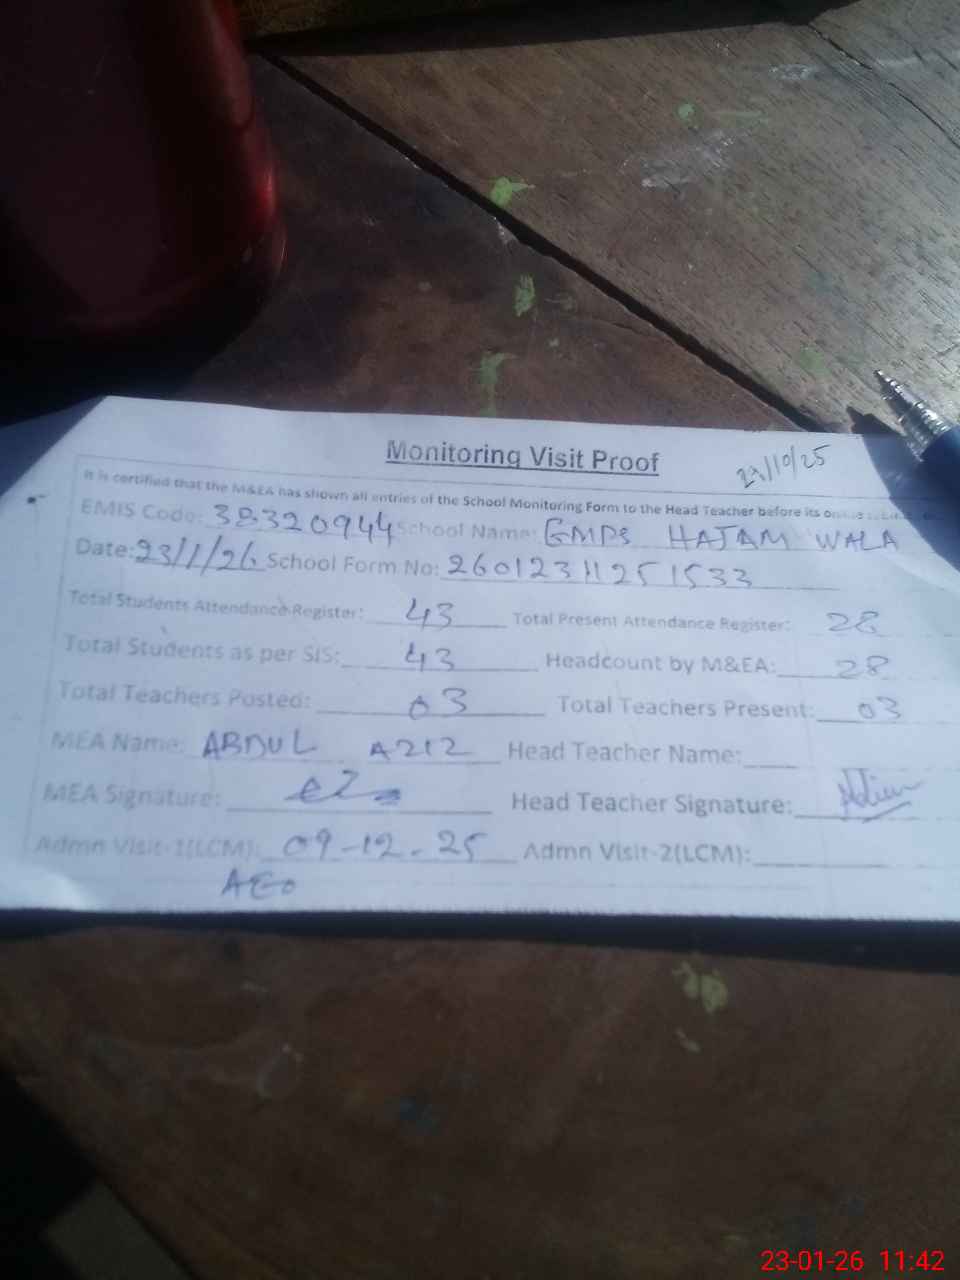 Monitoring Visit Proof
29/10/25
It is certified that the M&EA has shown all entries of the School Monitoring Form to the Head Teacher before its online
EMIS Code: 38320944 School Name: GMPS HAJAM WALA
Date: 23/1/26 School Form No: 26012311251533
Total Students Attendance Register: 43 Total Present Attendance Register: 28
Total Students as per SIS: 43 Headcount by M&EA: 28
Total Teachers Posted: 03 Total Teachers Present: 03
MEA Name: ABDUL AZIZ Head Teacher Name:
MEA Signature: Head Teacher Signature:
Admn Visit-1(LCM): 09-12-25 Admn Visit-2(LCM):
AEO
23-01-26 11:42